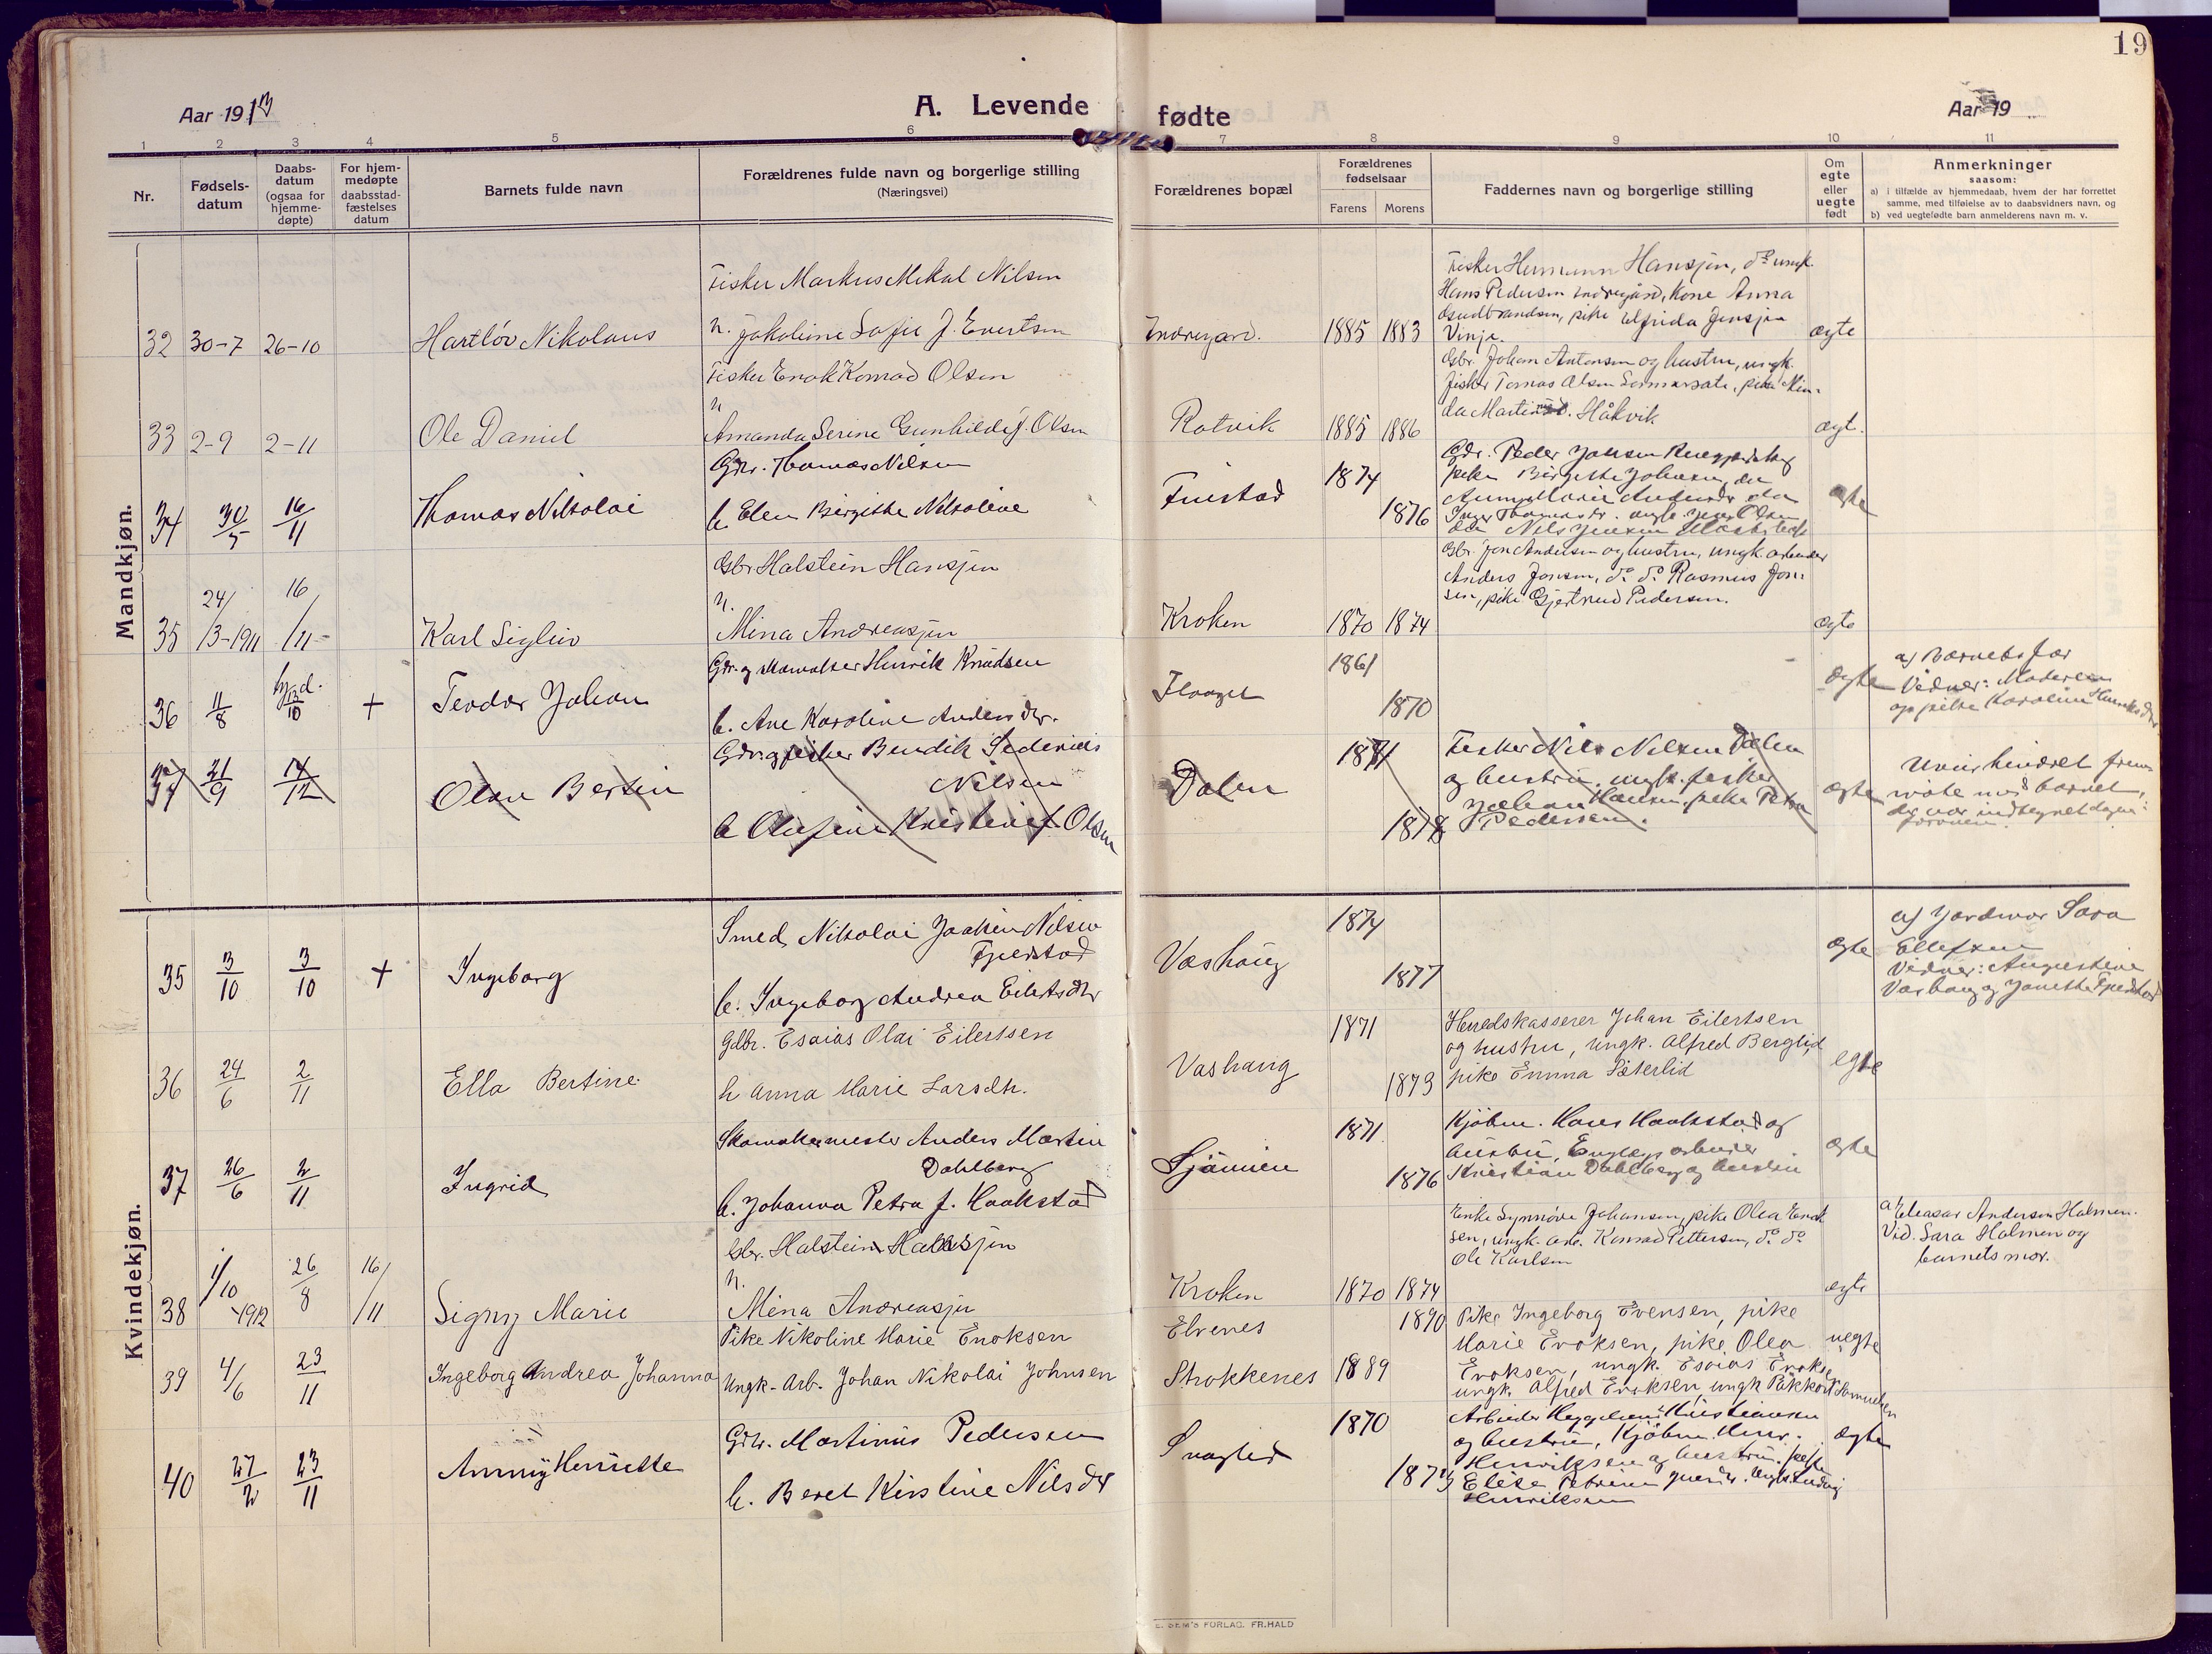 19
Aar 1913
A. Levende
fødte
Aar 19
1 2 3 4 5 6 7 8 9 10 11
Nr.
Fødsels-
datum
Daabs-
datum
(ogsaa for
hjemme-
døpte)
For hjem-
medøpte
daabsstad-
fæstelses
datum
Barnets fulde navn
Forældrenes fulde navn og borgerlige stilling
(Næringsvei)
Forældrenes bopæl
Forældrenes
fødselsaar
Farens Morens
Faddernes navn og borgerlige stilling
Om
egte
eller
uegte
født
Anmerkninger
saasom:
a) i tilfælde av hjemmedaab, hvem der har forrettet
samme, med tilføielse av to daabsvidners navn, og
b) ved uegtefødte barn anmelderens navn m. v.
Mandkjøn.
32 30-7 26-10 Hartløv Nikolaus
Fisker Markus Mikal Nilsen
h. Jakoline Sofie J. Evertsen
Indregard. 1885 1883
Fisker Hermann Hansjen, do ungk.
Hans Pedersen Indregård, Kone Anna
Gudbrandsen, pike Elfrida Jensjen
Vinje.
ægte
33 2-9 2-11 Ole Daniel
Fisker Enok Konrad Olsen
h
Amanda Serine Gunhilde J. Olsen
Rotvik 1885 1886
Gbr. Johan Antonsen og hustru, ungk.
fisker Tomas Olsen Sørmarsate, pike Min-
da Håkvik
ægt.
34 30/5 16/11 Thomas Nikolai
Gdr. Thomas Nilsen
h. Elen Birgitte Nikoline
Fuestad 1874 1876
Gdr. Peder Jonsen
pike Birgitte Johnsen, do
Anna Marie Andersdr do
Inger Thomasdr. ungk. Jens Olsen
do Nils Jensen
ægte
35 24/3-1911 16/11- Karl Sigleiv
Gbr Halstein Hansjen
h.
Mina Andreasjen
Kroken 1870 1874
Gbr. Jon Andersen og hustru, ungk arbeider
Anders Jonsen, do do Rasmus Jon-
sen, pike Gjertrud Pedersen.
ægte
36 11/8 hjd. 12/10 + Teodor Johan
Gdr. og Henrik Knudsen
h. Ane Karoline Andersdtr.
Flaaget 1861 1870
ægte
a) Barnets far
Vidner: Moderen
og pike Karoline Henriksdtr
37 21/9 14/12 Olav Bertin
Gdr. og fisker Bendik Sedenius
Nilsen
h Olufine Kristine f. Olsen
Dalen 1871 1878
Fisker Nils Nilsen Dalen
og hustru, ungk. fisker
Johan Hansen, pike Petra
Pedersen.
ægte
Uveir hindret frem-
møte med barnet,
der var indtegnet dagen
forveien.
Kvindekjøn.
35 3/10 3/10 + Ingeborg
Smed Nikolai Joakim Nilsen
Fjeldstad
h. Ingeborg Andrea Eilertsdtr
Vashaug 1874 1877
ægte
a) Jordmor Sara
Ellefsen
Vidner: Augustine
Vashaug og Janetta Fjeldstad
36 24/6 2/11 Ella Bertine
Gdbr. Esaias Olai Eilertsen
h Anna Marie Larsdtr.
Vashaug 1871 1873
Herredskasserer Johan Eilertsen
og hustru, ungk. Alfred Berglid
pike Emma Sæterlid
egte
37 26/6 2/11 Ingrid
Skomakermester Anders Martin
Dahlberg
h. Johanna Petra f. Haakstad
Sjøveien 1871 1876
Kjøbm. Hans Haakstad og
hustru, arbeider
Kristian Dahlberg og hustru
ægte
38 1/10-1912 26/8 16/11 Signy Marie
Gbr. Halstein Hansjen
h.
Mina Andreasjen
Kroken 1870 1874
Enke Synnøve Johansen, pike Olea Enok
sen, ungk. arb. Konrad Pettersen, do do
Ole Karlsen
ægte
a) Eleasar Andersen Holmen.
Vid. Sara Holmen og
barnets mor.
39 4/6 23/11 Ingeborg Andrea Johanna
Pike Nikoline Marie Enoksen
Ungk. Arb. Johan Nikolai Johnsen
Elvenes 1890
Strokkenes 1889
Pike Ingeborg Evensen, pike
Marie Enoksen, pike Olea
Enoksen, ungk. Esaias Enoksen
ungk. Alfred Enoksen, ungk Samuelsen
uegte
40 27/2 23/11 Anny Henriette
Gdr. Martinus Pedersen
h. Beret Kirstine Nilsdtr
1870
Arbeider Kristiansen
og hustru, Kjøbm.
Henriksen og hustru, pike
Elise Petrine ungk. Ludvig
Henriksen
ægte
E. SEM'S FORLAG. FR.HALD